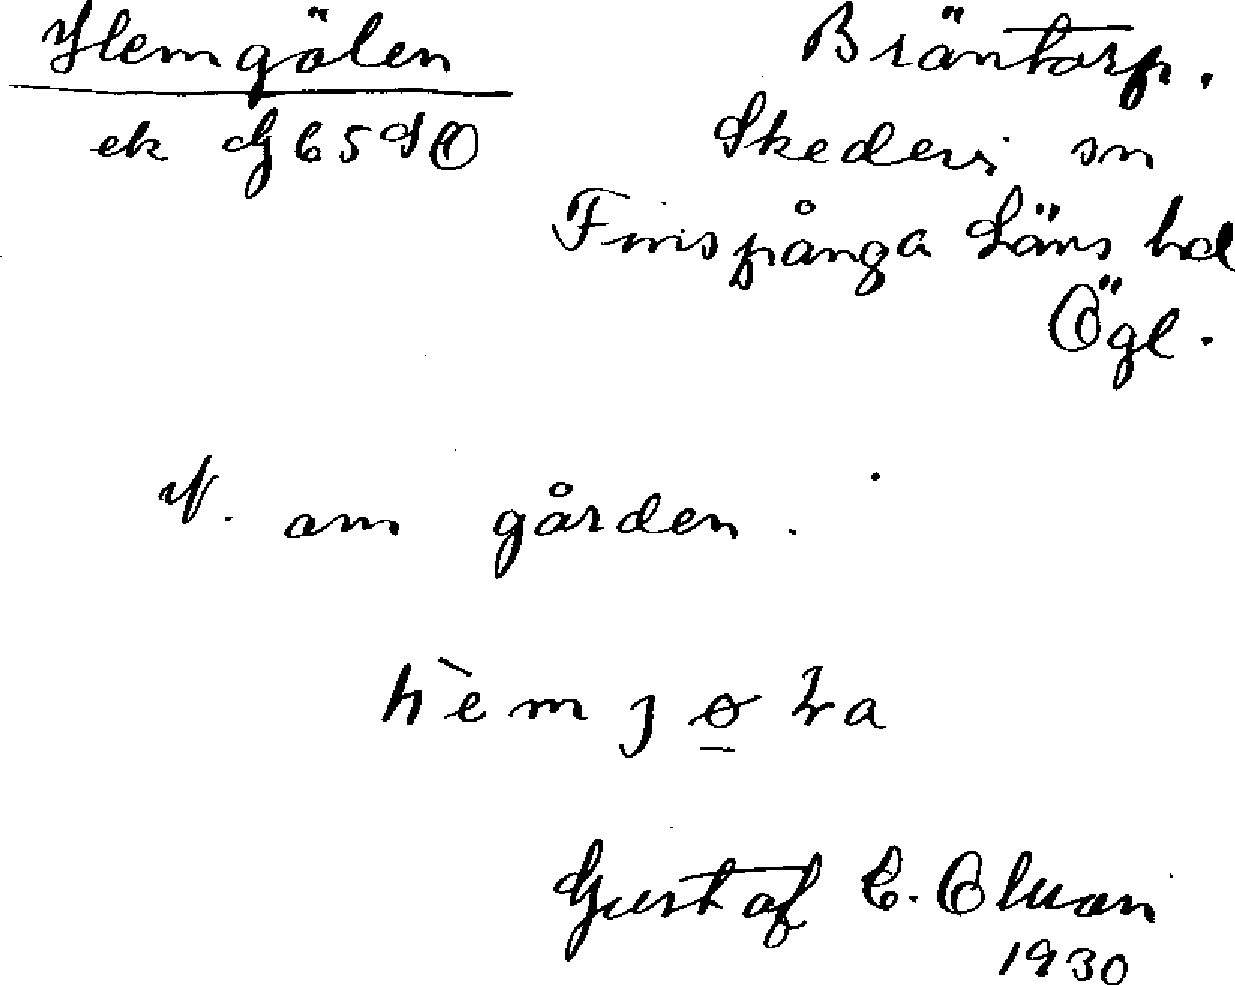 Hemgölen
ek G 65 SO
Bräntorp.
Skedevi sn
Finspånga Läns hd
Ögl.
N. om gården.
Gustaf E. Olsson
1930